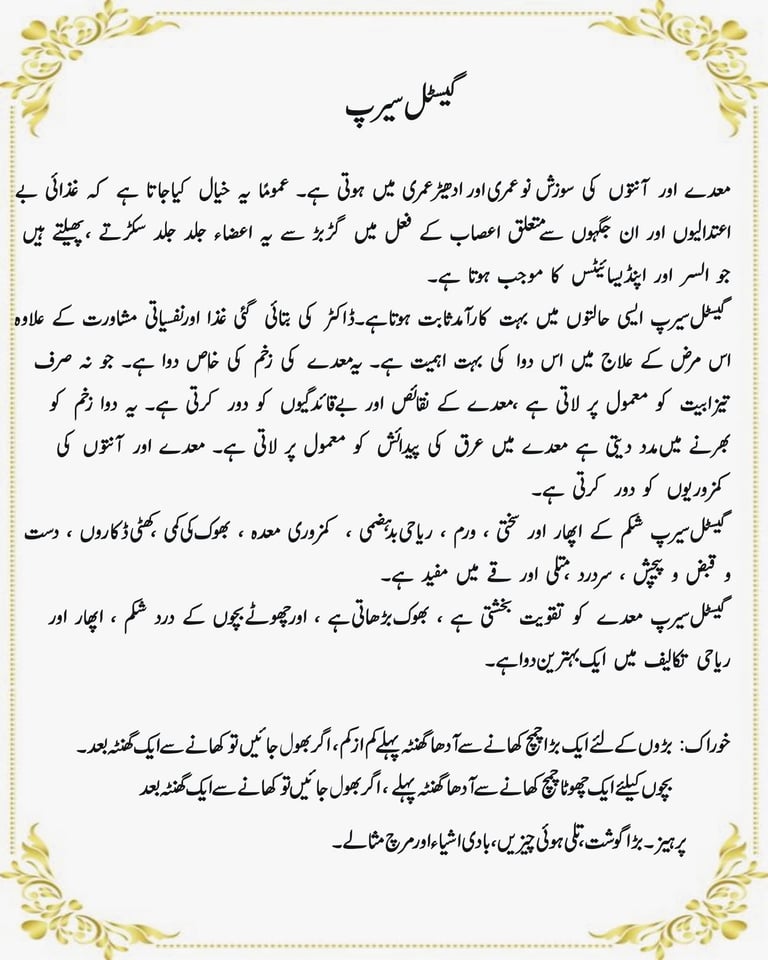 گیسٹل سیرپ
معدے اور آنتوں کی سوزش نوعمری اور ادھیڑعمری میں ہوتی ہے۔ عموماً یہ خیال کیاجاتا ہے کہ غذائی بے
اعتدالیوں اور ان جگہوں سےمتعلق اعصاب کے فعل میں گڑبڑ سے یہ اعضاء جلد جلد سکڑتے ،پھیلتے ہیں
جو السر اور اپنڈیسائیٹس کا موجب ہوتا ہے۔
گیسٹل سیرپ ایسی حالتوں میں بہت کارآمدثابت ہوتاہے۔ڈاکٹر کی بتائی گئی غذا اورنفسیاتی مشاورت کے علاوہ
اس مرض کے علاج میں اس دوا کی بہت اہمیت ہے۔ یہ معدے کی زخم کی خاص دوا ہے۔ جو نہ صرف
تیزابیت کو معمول پر لاتی ہے ،معدے کے نقائص اور بےقائدگیوں کو دور کرتی ہے۔ یہ دوا زخم کو
بھرنے میں مدد دیتی ہے معدے میں عرق کی پیدائش کو معمول پر لاتی ہے۔ معدے اور آنتوں کی
کمزوریوں کو دور کرتی ہے۔
گیسٹل سیرپ شکم کے اپھار اور سختی ، ورم ، ریاحی بدہضمی ، کمزوری معدہ ، بھوک کی کمی ،کھٹی ڈکاروں ، دست
و قبض و پیچش ، سردرد ،متلی اور قے میں مفید ہے۔
گیسٹل سیرپ معدے کو تقویت بخشتی ہے ، بھوک بڑھاتی ہے ، اورچھوٹے بچوں کے درد شکم ، اپھار اور
ریاحی تکالیف میں ایک بہترین دوا ہے۔
خوراک: بڑوں کے لئے ایک بڑا چمچ کھانے سے آدھا گھنٹہ پہلے کم از کم، اگر بھول جائیں تو کھانے سے ایک گھنٹہ بعد۔
بچوں کیلئے ایک چھوٹا چمچ کھانے سے آدھا گھنٹہ پہلے ، اگر بھول جائیں تو کھانے سے ایک گھنٹہ بعد
پرہیز ۔ بڑا گوشت، تلی ہوئی چیزیں، بادی اشیاء اور مرچ مثالے۔